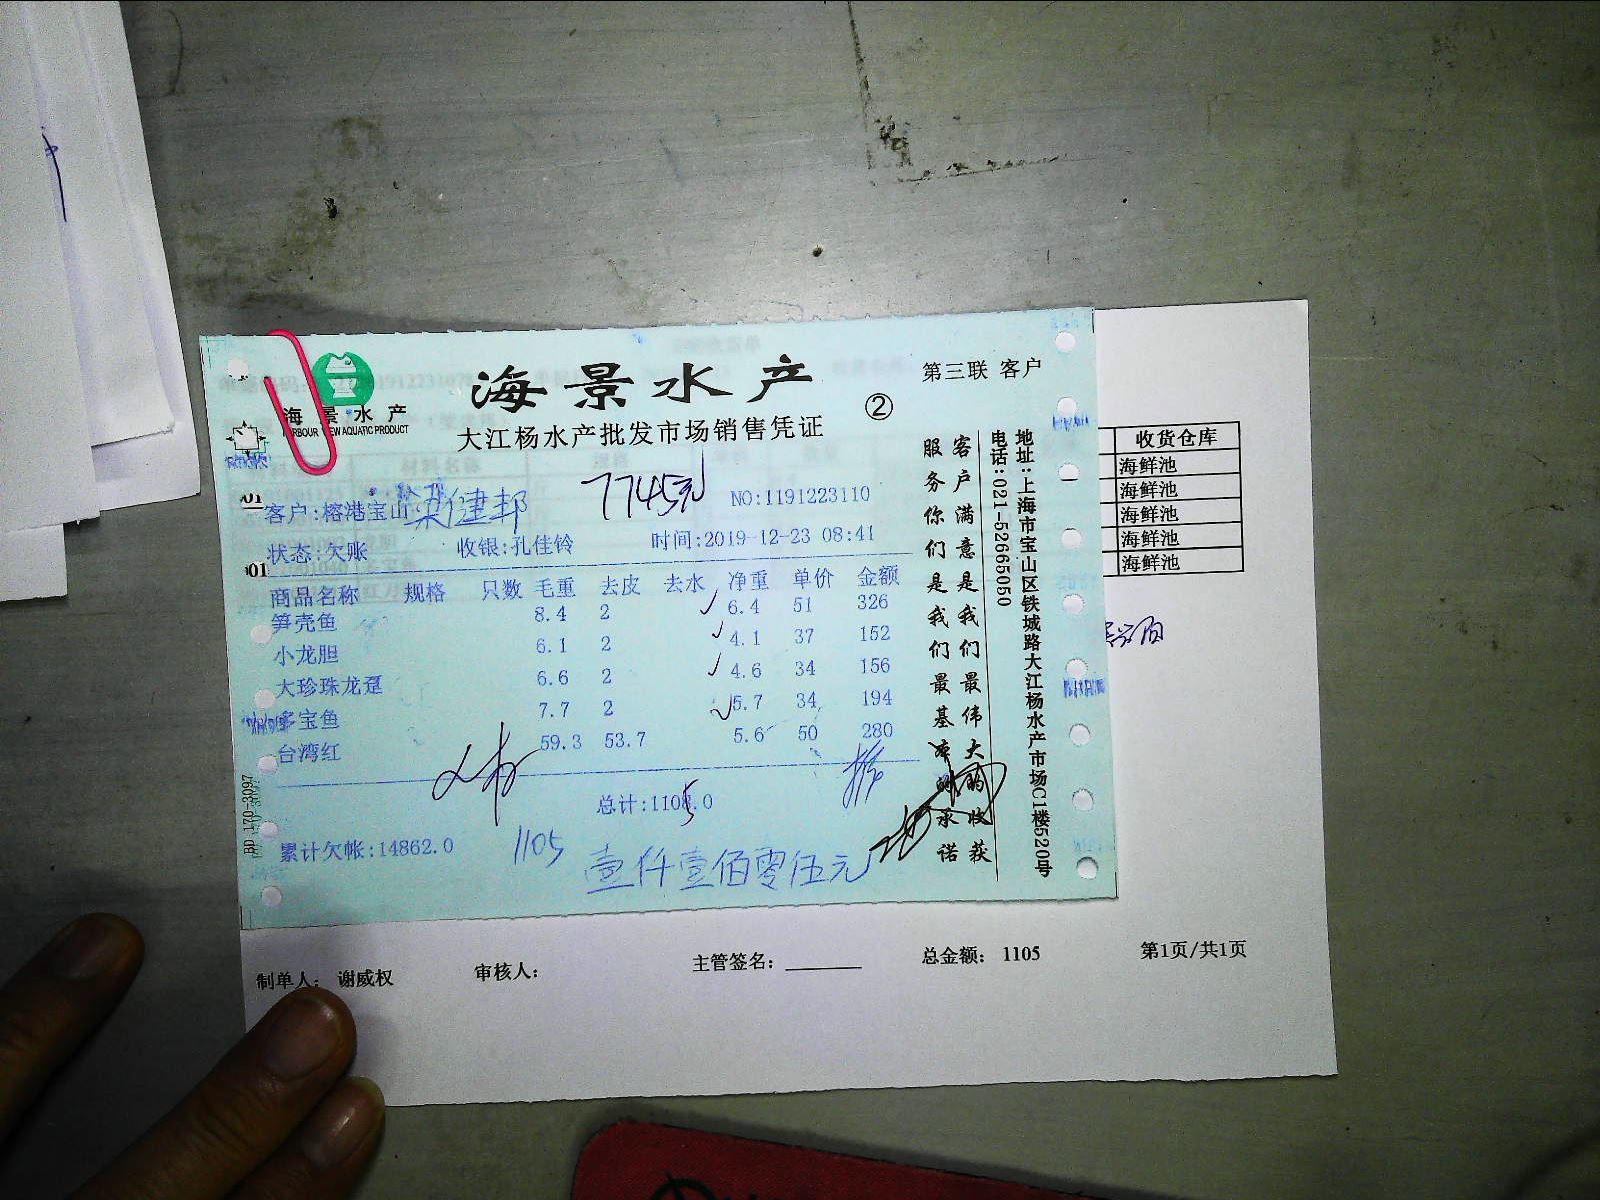 海景水产
HARBOUR VIEW AQUATIC PRODUCT
海景水产
大江杨水产批发市场销售凭证
②
第三联 客户
客户:榕港宝山 梁健邦
7745元
NO:1191223110
状态:欠账 收银:孔佳铃 时间:2019-12-23 08:41
商品名称 规格 只数 毛重 去皮 去水 净重 单价 金额
笋壳鱼 8.4 2 6.4 51 326
小龙胆 6.1 2 4.1 37 152
大珍珠龙趸 6.6 2 4.6 34 156
多宝鱼 7.7 2 5.7 34 194
台湾红 59.3 53.7 5.6 50 280
总计:1108.0
5
累计欠帐:14862.0
1105
壹仟壹佰零伍元
客户满意是我们最伟大的收获
服务你们是我们最基本的承诺
地址:上海市宝山区铁城路大江杨水产市场C1楼520号
电话:021-52665050
BD 170-3097
收货仓库
海鲜池
海鲜池
海鲜池
海鲜池
海鲜池
制单人: 谢威权 审核人: 主管签名: 总金额: 1105 第1页/共1页